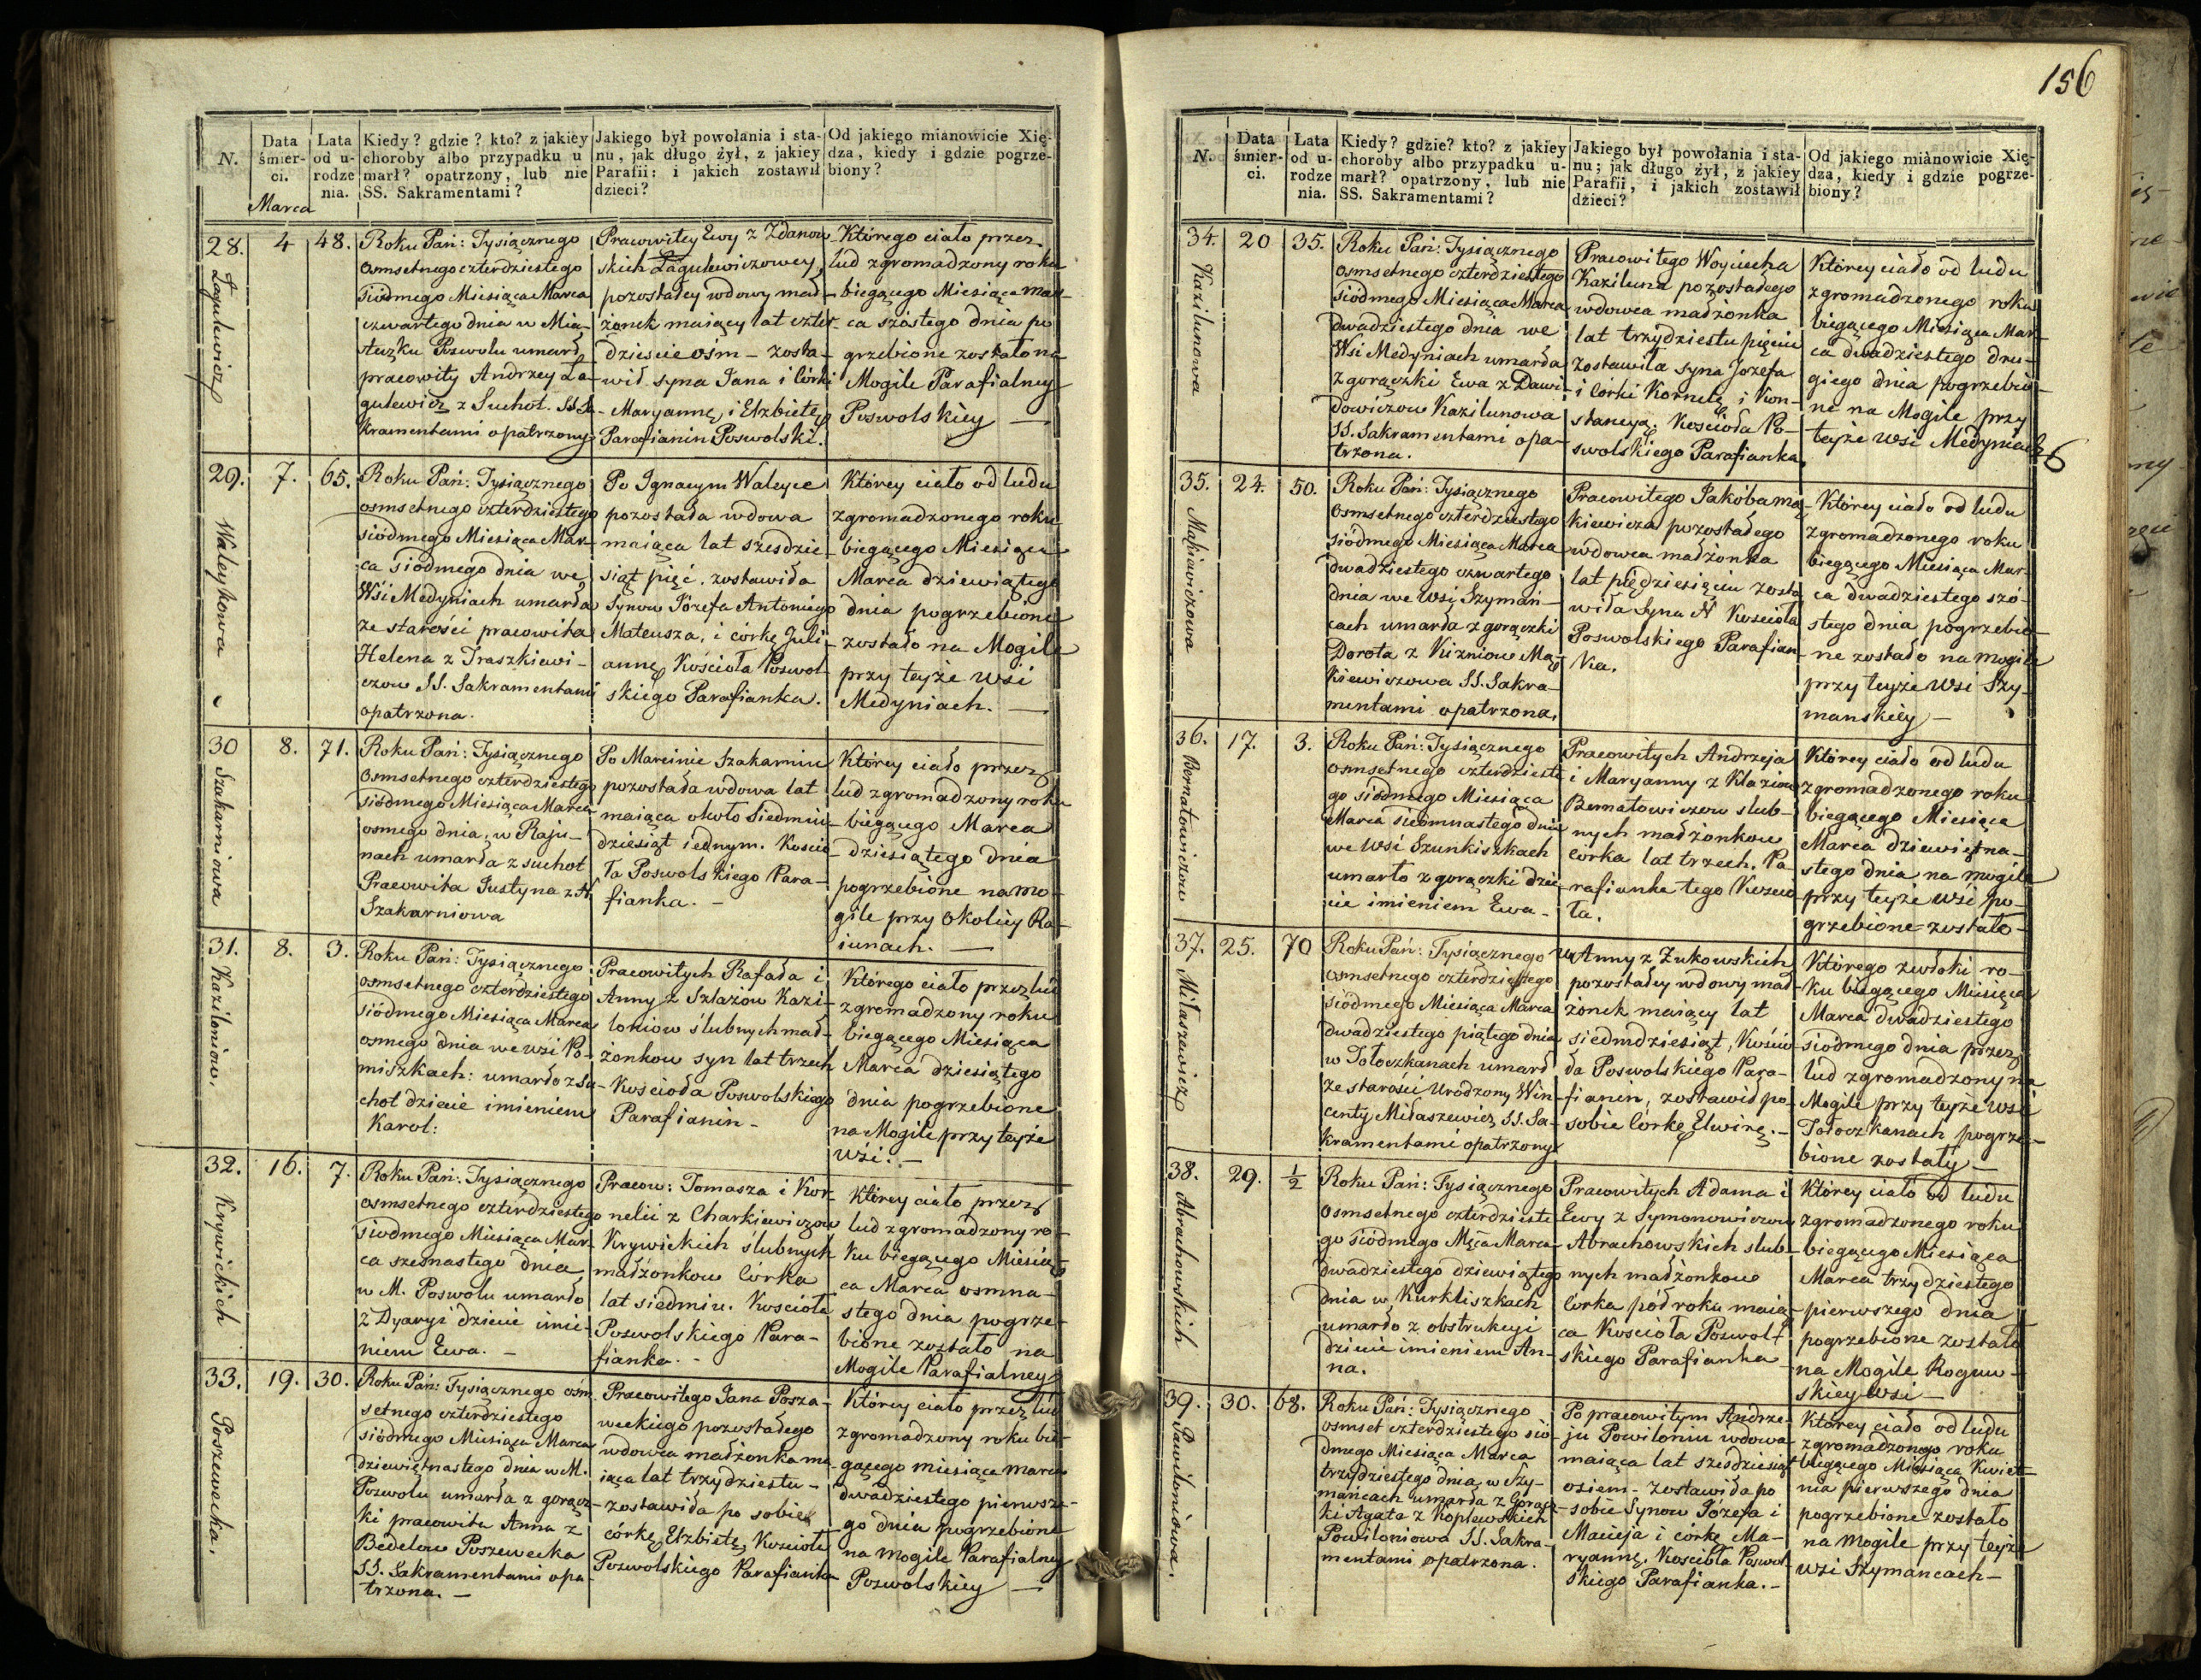 156
N.
Data śmier-
ci.
Marca
Lata
od u-
rodze
nia.
Kiedy? gdzie? kto? z jakiey
choroby albo przypadku u
marł? opatrzony, lub nie
SS. Sakramentami?
Jakiego był powołania i sta-
nu, jak długo żył, z jakiey
Parafii: i jakich zostawił
dzieci?
Od jakiego mianowicie Xię-
dza, kiedy i gdzie pogrze-
biony?
28.
Łagulewicz
4
48.
Roku Pań: Tysiącznego
osmsetnego czterdziestego
siódmego Miesiąca Marca
czwartego dnia w Mia-
steczku Poswolu umarł
pracowity Andrzey Ła-
gulewicz z Suchot. SS. Sa-
kramentami opatrzony
Pracowitey Ewy z Zdanow-
skich Łagulewiczowey,
pozostałey wdowy mał-
żonek maiący lat czter-
dzieście ośm - zosta-
wił syna Jana i Córki
Maryannę i Elzbietę
Parafianin Poswolski.
Którego ciało przez
lud zgromadzony roku
biegącego Miesiąca Mar-
ca szóstego dnia po
grzebione zostało na
Mogile Parafialney
Poswolskiey —
29.
Waleykowa
7.
65.
Roku Pań: Tysiącznego
osmsetnego czterdziestego
siódmego Miesiąca Mar-
ca siódmego dnia we
Wsi Medyniach umarła
ze starości pracowita
Helena z Traszkiewi-
czow SS. Sakramentami
opatrzona.
Po Ignacym Waleyce
pozostała wdowa
maiąca lat sześdzie-
siąt pięć. zostawiła
Synow Józefa Antoniego
Mateusza, i córkę Juli-
annę Kościoła Poswol-
skiego Parafianka.
Którey ciało od ludu
zgromadzonego roku
biegącego Miesiąca
Marca dziewiątego
dnia pogrzebione
zostało na Mogile
przy teyże wsi
Medyniach. —
30
Szakarniowa
8.
71.
Roku Pań: Tysiącznego
Osmsetnego czterdziestego
siódmego Miesiąca Marca
osmego dnia, w Raju-
nach umarła z suchot
Pracowita Justyna z N.
Szakarniowa
Po Marcinie Szakarniu
pozostała wdowa lat
maiąca około siedmiu-
dziesiąt iednym. Koscio-
ła Poswolskiego Para-
fianka. -
Którey ciało przez
lud zgromadzony roku
biegącego Marca
dziesiątego dnia
pogrzebione na mo-
gile przy okolicy Ra-
iunach. —
31.
Kaziloniow.
8.
3.
Roku Pań: Tysiącznego
osmsetnego czterdziestego
siódmego Miesiąca Marca
osmego dnia we wsi Po-
miszkach: umarło z su-
chot dziecie imieniem
Karol:
Pracowitych Rafała i
Anny z Szlażow Kazi-
loniow ślubnych mał-
żonkow syn lat trzech
Kościoła Poswolskiego
Parafianin -
Którego ciało przez lud
zgromadzony roku
biegącego Miesiąca
Marca dziesiątego
dnia pogrzebione
na Mogile przy teyże
Wsi. -
32.
Krywickich
16.
7.
Roku Pań: Tysiącznego
osmsetnego czterdziestego
siodmego Miesiąca Mar-
ca szesnastego dnia
w M. Poswolu umarło
z Dyaryi dziecie imie-
niem Ewa. -
Pracow: Tomasza i Kor-
nelii z Charkiewiczow
Krywickich ślubnych
małżonkow Córka
lat siedmiu. Kościoła
Poswolskiego Para-
fianka. -
Którey ciało przez
lud zgromadzony ro-
ku biegącego Miesią-
ca Marca osmna-
stego dnia pogrze-
bione zostało na
Mogile Parafialney
33.
Poszewecka.
19.
30.
Roku Pań: Tysiącznego ośm-
setnego czterdziestego
siódmego Miesiąca Marca
dziewiętnastego dnia w M.
Poswolu umarła z gorącz-
ki pracowita Anna z
Bedelow Poszewecka
SS. Sakramentami opa-
trzona. —
Pracowitego Jana Posza-
weckiego pozostałego
wdowca małżonka ma-
iąca lat trzydziestu -
zostawiła po sobie
córkę Elzbietę, Kosciola
Poswolskiego Parafianka
Którey ciało przez lud
zgromadzony roku bie-
gącego miesiąca marca
dwadziestego pierwsze-
go dnia pogrzebione
na mogile Parafialney
Poswolskiey —
N.
Data
śmier-
ci.
Lata
od u-
rodze
nia.
Kiedy? gdzie? kto? z jakiey
choroby albo przypadku u-
marł? opatrzony, lub nie
SS. Sakramentami?
Jakiego był powołania i sta-
nu; jak długo żył, z jakiey
Parafii, i jakich zostawił
dzieci?
Od jakiego mianowicie Xię-
dza, kiedy i gdzie pogrze-
biony?
34.
Kazilunowa
20
35.
Roku Pań: Tysiącznego
osmsetnego czterdziestego
siódmego Miesiąca Marca
dwadziestego dnia we
Wsi Medyniach umarła
z gorączki Ewa z Dawi-
dowiczow Kazilunowa
SS. Sakramentami opa-
trzona.
Pracowitego Woyciecha
Kaziluna pozostałego
wdowca małżonka
lat trzydziestu pięciu
zostawiła syna Jozefa
i Córki Kornelę i Kon-
stancyą. Kościoła Po-
swolskiego Parafianka,
Którey ciało od ludu
zgromadzonego roku
biegącego Miesiąca Mar-
ca dwadziestego dru-
giego dnia pogrzebio-
ne na Mogile przy
teyże wsi Medyniach
35.
Mackiawiczowa
24.
50.
Roku Pań: Tysiącznego
osmsetnego czterdziestego
siódmego Miesiąca Marca
dwadziestego czwartego
dnia we wsi Szymań-
cach umarła z gorączki
Dorota z Kizniow Mac-
kiewiczowa SS. Sakra-
mentami opatrzona.
Pracowitego Jakóba Mac-
kiewicza pozostałego
wdowca małżonka
lat pięddziesięciu zosta-
wiła Syna N Kosciola
Poswolskiego Parafian-
ka.
Którey ciało od ludu
zgromadzonego roku
biegącego Miesiąca Mar-
ca dwadziestego szó-
stego dnia pogrzebio-
ne zostało na mogile
przy teyże wsi Szy-
manskiey —
36.
Bernatowiczow
17.
3.
Roku Pań: Tysiącznego
osmsetnego czterdzieste
go siódmego Miesiąca
Marca siedmnastego dnia
we wsi Szunkiszkach
umarło z gorączki dzie-
cie imieniem Ewa -
Pracowitych Andrzeja
i Maryanny z Klaziow
Bernatowiczow slub-
nych małżonkow
córka lat trzech. Pa-
rafianka tego Koscio-
ła.
Którey ciało od ludu
zgromadzonego roku
biegącego Miesiąca
Marca dziewiętna-
stego dnia na mogile
przy teyże wsi po-
grzebione zostało -
37.
Miłaszewicz
25.
70
Roku Pań: Tysiącznego
osmsetnego czterdziestego
siódmego Miesiąca Marca
dwadziestego piątego dnia
w Tołoczkanach umarł
ze starości Urodzony Win-
centy Miłaszewicz SS. Sa-
kramentami opatrzony
Anny z Zukowskich
pozostałey wdowy mał-
żonek maiący lat
siedmdziesiąt, Kościo-
ła Poswolskiego Para-
fianin, zostawił po
sobie Córkę Elwirę. -
Którego zwłoki ro-
ku biegącego Miesiąca
Marca dwadziestego
siódmego dnia przez
lud zgromadzony na
Mogile przy teyże wsi
Tołoczkanach pogrze-
bione zostały —
38.
Abrachowskich
29.
1/2
Roku Pań: Tysiącznego
Osmsetnego czterdzieste
go siódmego Mca Marca
dwadziestego dziewiątego
dnia w Kurkliszkach
umarło z obstrukcyi
dziecie imieniem An-
na.
Pracowitych Adama i
Ewy z Symonowiczow
Abrachowskich slub-
nych małżonkow
Córka pół roku maią-
ca Kościoła Poswol-
skiego Parafianka -
Którey ciało od ludu
zgromadzonego roku
biegącego Miesiąca
Marca trzydziestego
pierwszego dnia
pogrzebione zostało
na Mogile Roguw-
skiey wsi —
39.
Pawiloniowa.
30.
68.
Roku Pań: Tysiącznego
osmset czterdziestego sió-
dmego Miesiąca Marca
trzydziestego dnia, w Szy-
mańcach umarła z Gorącz-
ki Agata z Koplewskich
Powiloniowa SS. Sakra-
mentami opatrzona.
Po pracowitym Andrze-
ju Powiloniu wdowa
maiąca lat sześdziesiąt
osiem - zostawiła po
sobie Synow Józefa i
Macieja i córkę Ma-
ryannę. Kosciola Poswol-
skiego Parafianka. -
Którey ciało od ludu
zgromadzonego roku
biegącego Miesiąca Kwiet-
nia pierwszego dnia
pogrzebione zostało
na mogile przy teyże
wsi Szymancach —